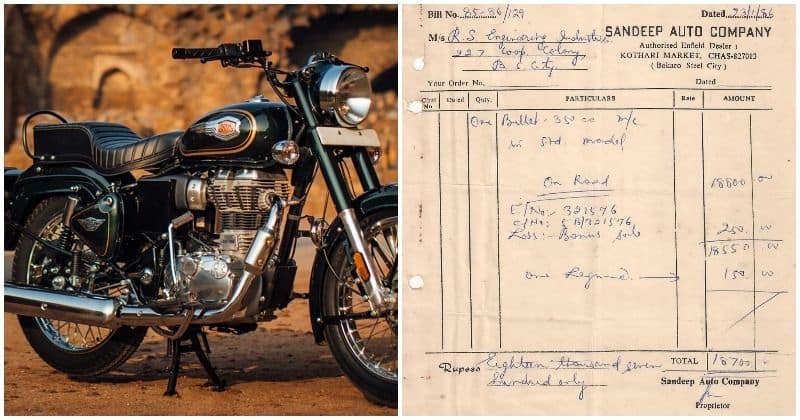 Bill No. 85-86/129 Dated 23/1/86
SANDEEP AUTO COMPANY
M/s R.S. Engineering Industries
Authorised Enfield Dealer :
227 Coop. Colony
KOTHARI MARKET, CHAS-827013
B. S. City
( Bokaro Steel City )
Your Order No. Dated
Chal No Dated Qnty. PARTICULARS Rate AMOUNT
One Bullet - 350 cc m/c
in Std model
On Road 18800 00
E/No:- 321576
C/No:- 5 B/321576
Less:- Bonus 250 00
18550 00
One Legguard → 150 00
Rupees Eighteen thousand seven TOTAL 18700
hundred only
Sandeep Auto Company
Proprietor